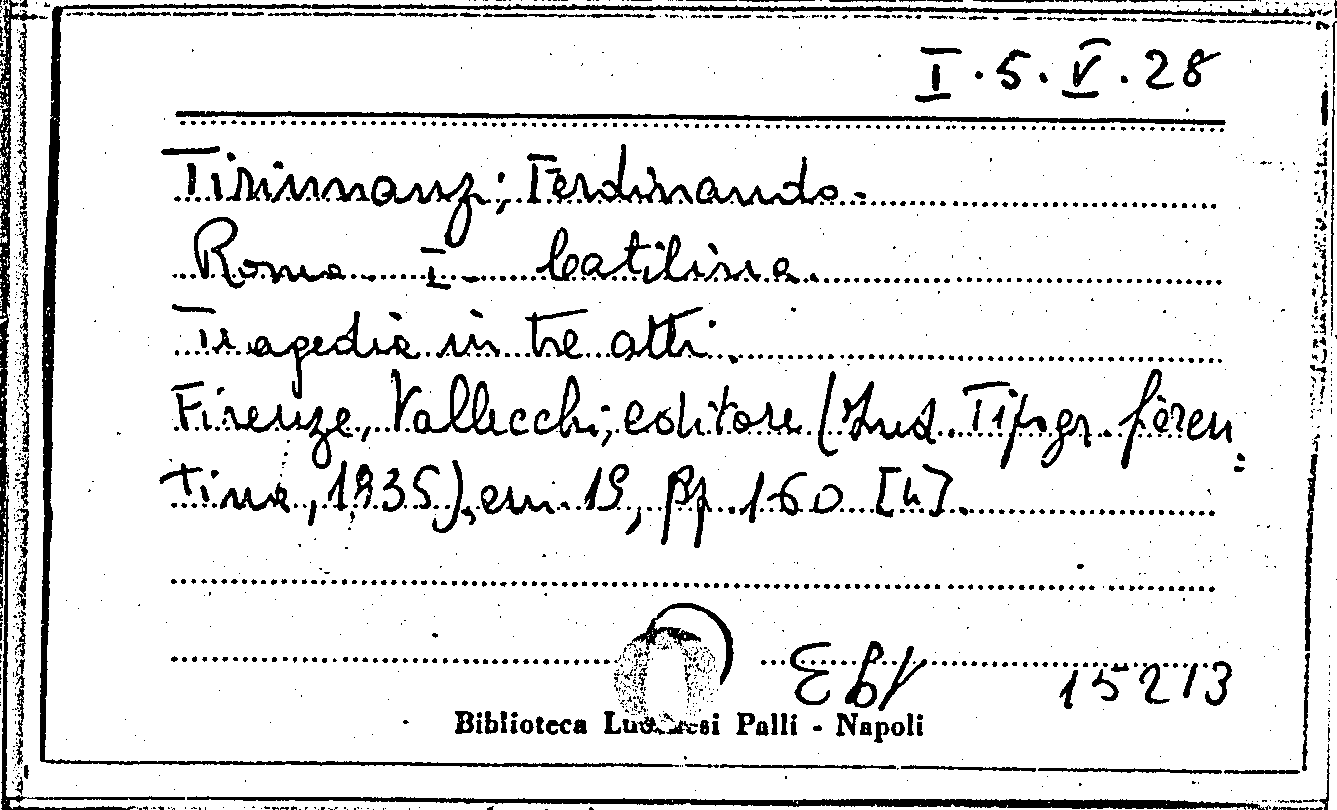 I.5.V.28
Tirinnanzi, Ferdinando.
Roma. I - Catilina.
Tragedia in tre atti.
Firenze, Vallecchi, editore (Ind. Tipogr. fioren-
tina, 1935), cm. 19, pp. 160 [4].
15213
Biblioteca Lucchesi Palli - Napoli